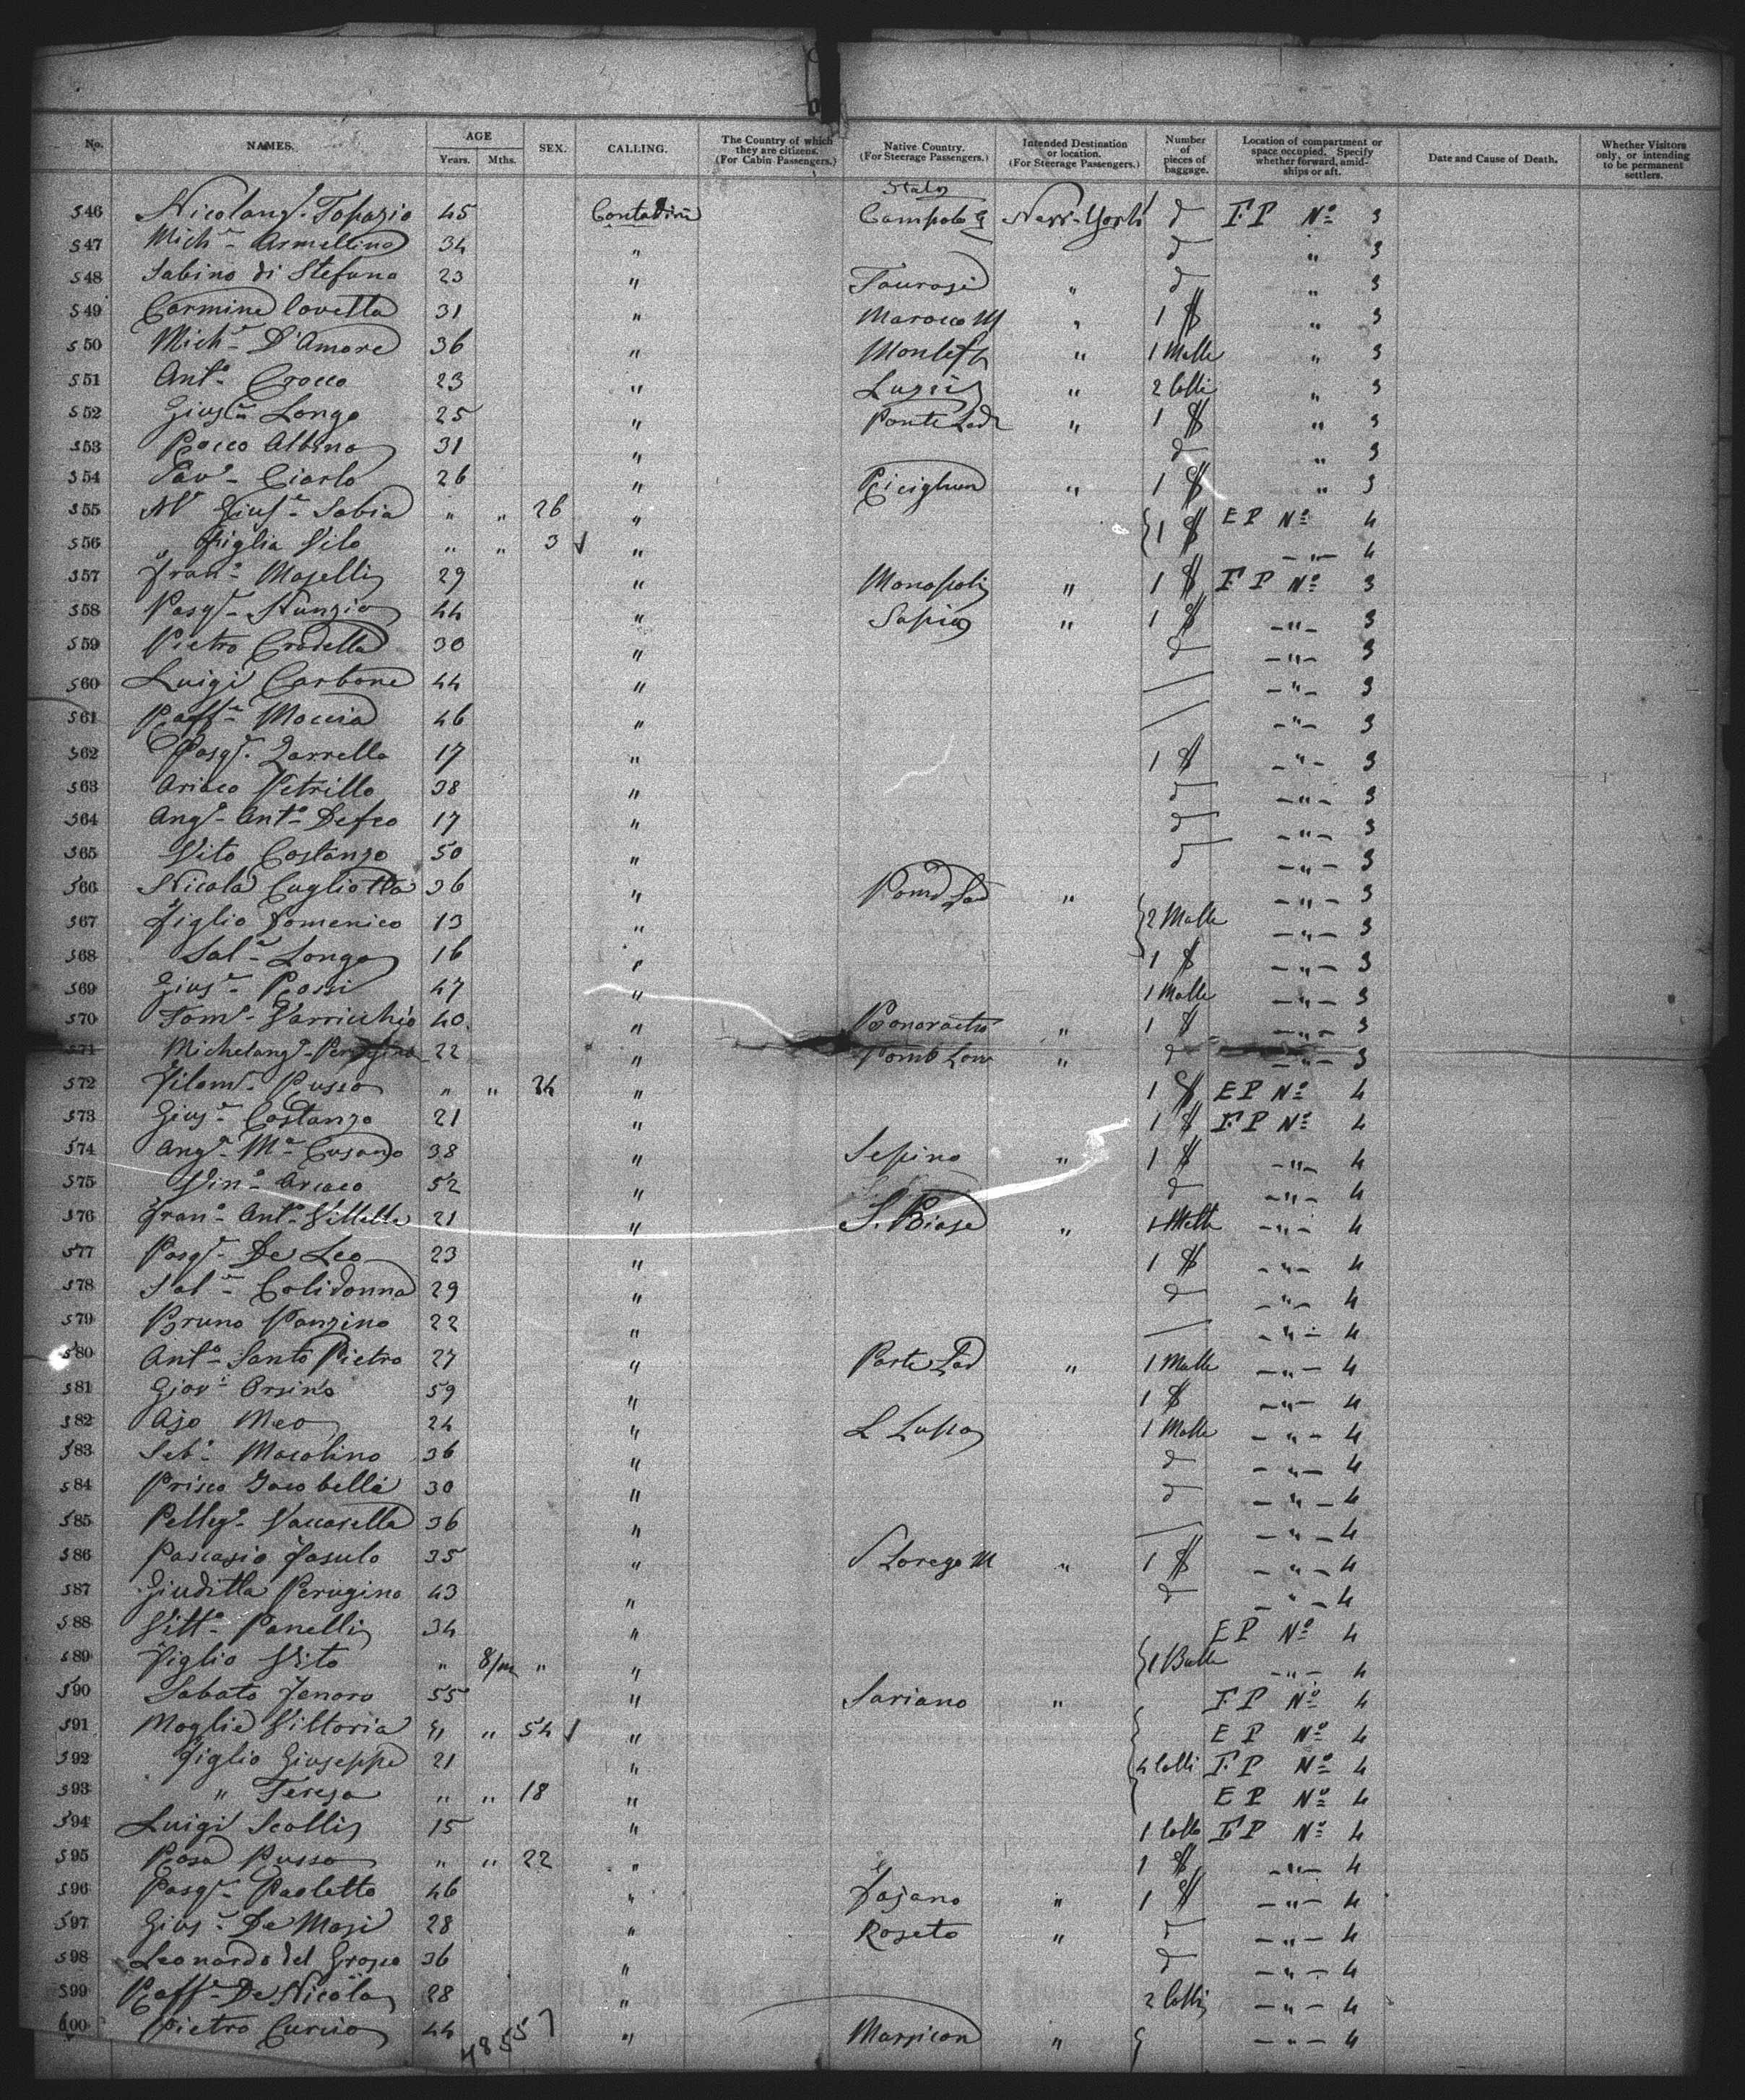 No. NAMES. AGE Years. Mths. SEX. CALLING. The Country of which they are citizens. (For Cabin Passengers.) Native Country. (For Steerage Passengers.) Intended Destination or location. (For Steerage Passengers.) Number of pieces of baggage. Location of compartment or space occupied. Specify whether forward, amid-ships or aft. Date and Cause of Death. Whether Visitors only, or intending to be permanent settlers.
Italy
546 Nicolang. Topazio 45 Contadini New-York d F P No 3
547 Mich. Armellino 34 " d " 3
548 Sabino di Stefano 23 " Taurasi " d " 3
549 Carmine Covella 31 " " 1 $ " 3
550 Mich. D'Amore 36 " " 1 Malle " 3
551 Anto Crocco 23 " " 2 Colli " 3
552 Gius. Longo 25 " Ponte Lad " 1 $ " 3
553 Rocco Albano 31 " d " 3
554 Sav. Ciarlo 26 " " 1 $ " 3
555 Ma Gius. Sabia " " 26 " 1 $ E P No 4
556 " Figlia Vito " " 3 " -"- 4
557 Frano Maselli 29 " Monopoli " 1 $ F P No 3
558 Pasq. Nunzio 44 " " 1 $ -"- 3
559 Pietro Crodella 30 " d -"- 3
560 Luigi Carbone 44 " -"- 3
561 Raff. Moccia 46 " -"- 3
562 Pasq. Zarrella 17 " 1 $ -"- 3
563 Petrillo 38 " d -"- 3
564 Ang. Anto Defeo 17 " d -"- 3
565 Vito Costanzo 50 " d -"- 3
566 Nicola Cugliotta 36 " " -"- 3
567 Figlio Domenico 13 " 2 Malle -"- 3
568 Sal. Longo 16 " 1 $ -"- 3
569 Gius. Rossi 47 " 1 Malle -"- 3
570 Tom. Varricchio 40 " " 1 $ -"- 3
571 Michelang. Perugino 22 " " d -"- 3
572 Filom. Russo " " 24 " 1 $ E P No 4
573 Gius. Costanzo 21 " 1 $ F P No 4
574 Ang. Ma Cusano 38 " Sepino " 1 $ -"- 4
575 Vin. 52 " d -"- 4
576 Frano Anto Villella 21 " S. Biase " 1 Malle -"- 4
577 Pasq. De Leo 23 " 1 $ -"- 4
578 Sal. Colidonna 29 " d -"- 4
579 Bruno Panzino 22 " -"- 4
580 Anto Santo Pietro 27 " Ponte Lad " 1 Malle -"- 4
581 Giov. Orsino 59 " 1 $ -"- 4
582 Ajo Meo 24 " L Lupo 1 Malle -"- 4
583 Seb. Macolino 36 " d -"- 4
584 Prisco Jacobelli 30 " d -"- 4
585 Pelleg. Vaccarella 36 " -"- 4
586 Pascasio Fasulo 35 " S Lorezo M " 1 $ -"- 4
587 Giuditta Perugino 43 " d -"- 4
588 Vitt. Panelli 34 " E P No 4
589 Figlio Vito " 8/m " " -"- 4
590 Sabato Jenaro 55 " Sariano " F P No 4
591 Moglie Vittoria " " 54 " E P No 4
592 Figlio Giuseppe 21 " 4 Colli F P No 4
593 " Teresa " " 18 " E P No 4
594 Luigi Scalli 15 " 1 Collo F P No 4
595 Rosa Russo " " 22 " 1 $ -"- 4
596 Pasq. Paoletto 46 " Fajano " 1 $ -"- 4
597 Gius. De Masi 28 " Roseto " d -"- 4
598 Leonardo del Grosso 36 " d -"- 4
599 Raff. De Nicola 28 " 2 Colli -"- 4
600 Pietro Curcio 44 " Marsicon " -"- 4